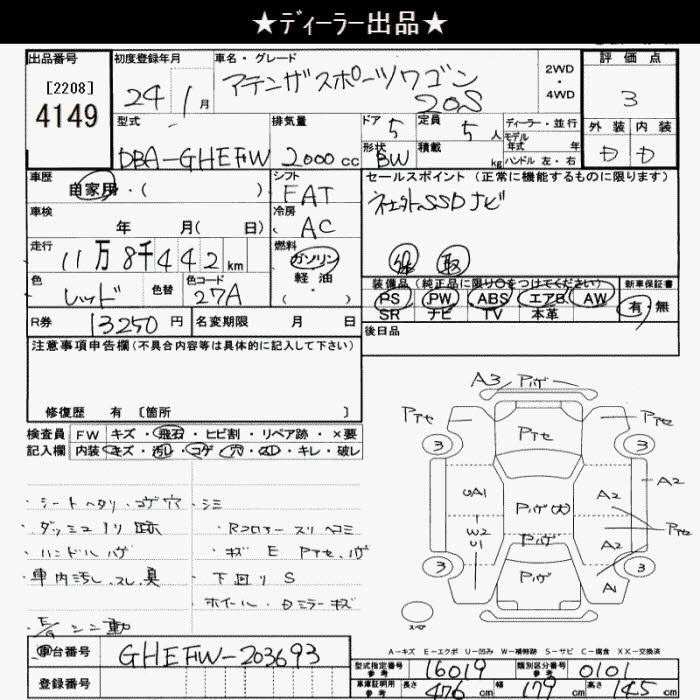 ★ディーラー出品★
出品番号 初度登録年月 車名・グレード 評価点
[2208] 24年 1月 アテンザスポーツワゴン 2WD
4149 20S 4WD 3
型式 排気量 ドア 5 定員 5人 ディーラー・並行 外装 内装
DBA-GHEFW 2000cc 形状 BW 積載 kg モデル年式 年 D D
ハンドル 左・右
車歴 自家用・( ) シフト FAT セールスポイント(正常に機能するものに限ります)
車検 年 月( 日) 冷房 AC 社外SSDナビ
走行 11万8千442km 燃料 ガソリン 軽油 ( ・ ) 保 取
色 レッド 色替 色コード 27A 装備品(純正品に限り○をつけてください) 新車保証書
PS PW ABS エアB AW 有・無
R券 13250円 名変期限 月 日 SR ナビ TV 本革
後日品
注意事項申告欄(不具合内容等は具体的に記入して下さい)
修復歴 有〔箇所 〕
検査員 FW キズ・飛石・ヒビ割・リペア跡・×要
記入欄 内装 キズ・汚れ・コゲ・穴・スレ・キレ・破レ
A3 Pハゲ
Pアセ Pアセ Pアセ
3 3
UA1 Pハゲ(大) A2 A2
W2 Pハゲ Pアセ
U1 A2
3 Pハゲ A1 3
スペア
・シートヘタリ・コゲ穴 ・シミ
・ダッシュノリ跡 ・Rコロアースリヘコミ
・ハンドルハゲ ・キズ E Pアセ、ハゲ
・車内汚し、スレ、臭 ・下回りS
・ホイール・Dミラーキズ
・E/gシンニ動
A-キズ E-エクボ U-凹み W-補修跡 S-サビ C-腐食 XX-交換済
車台番号 GHEFW-203693
型式指定番号 参考 16019 類別区分番号 参考 0101
登録番号 車庫証明用 参考 長さ 476cm 幅 179cm 高さ 145cm